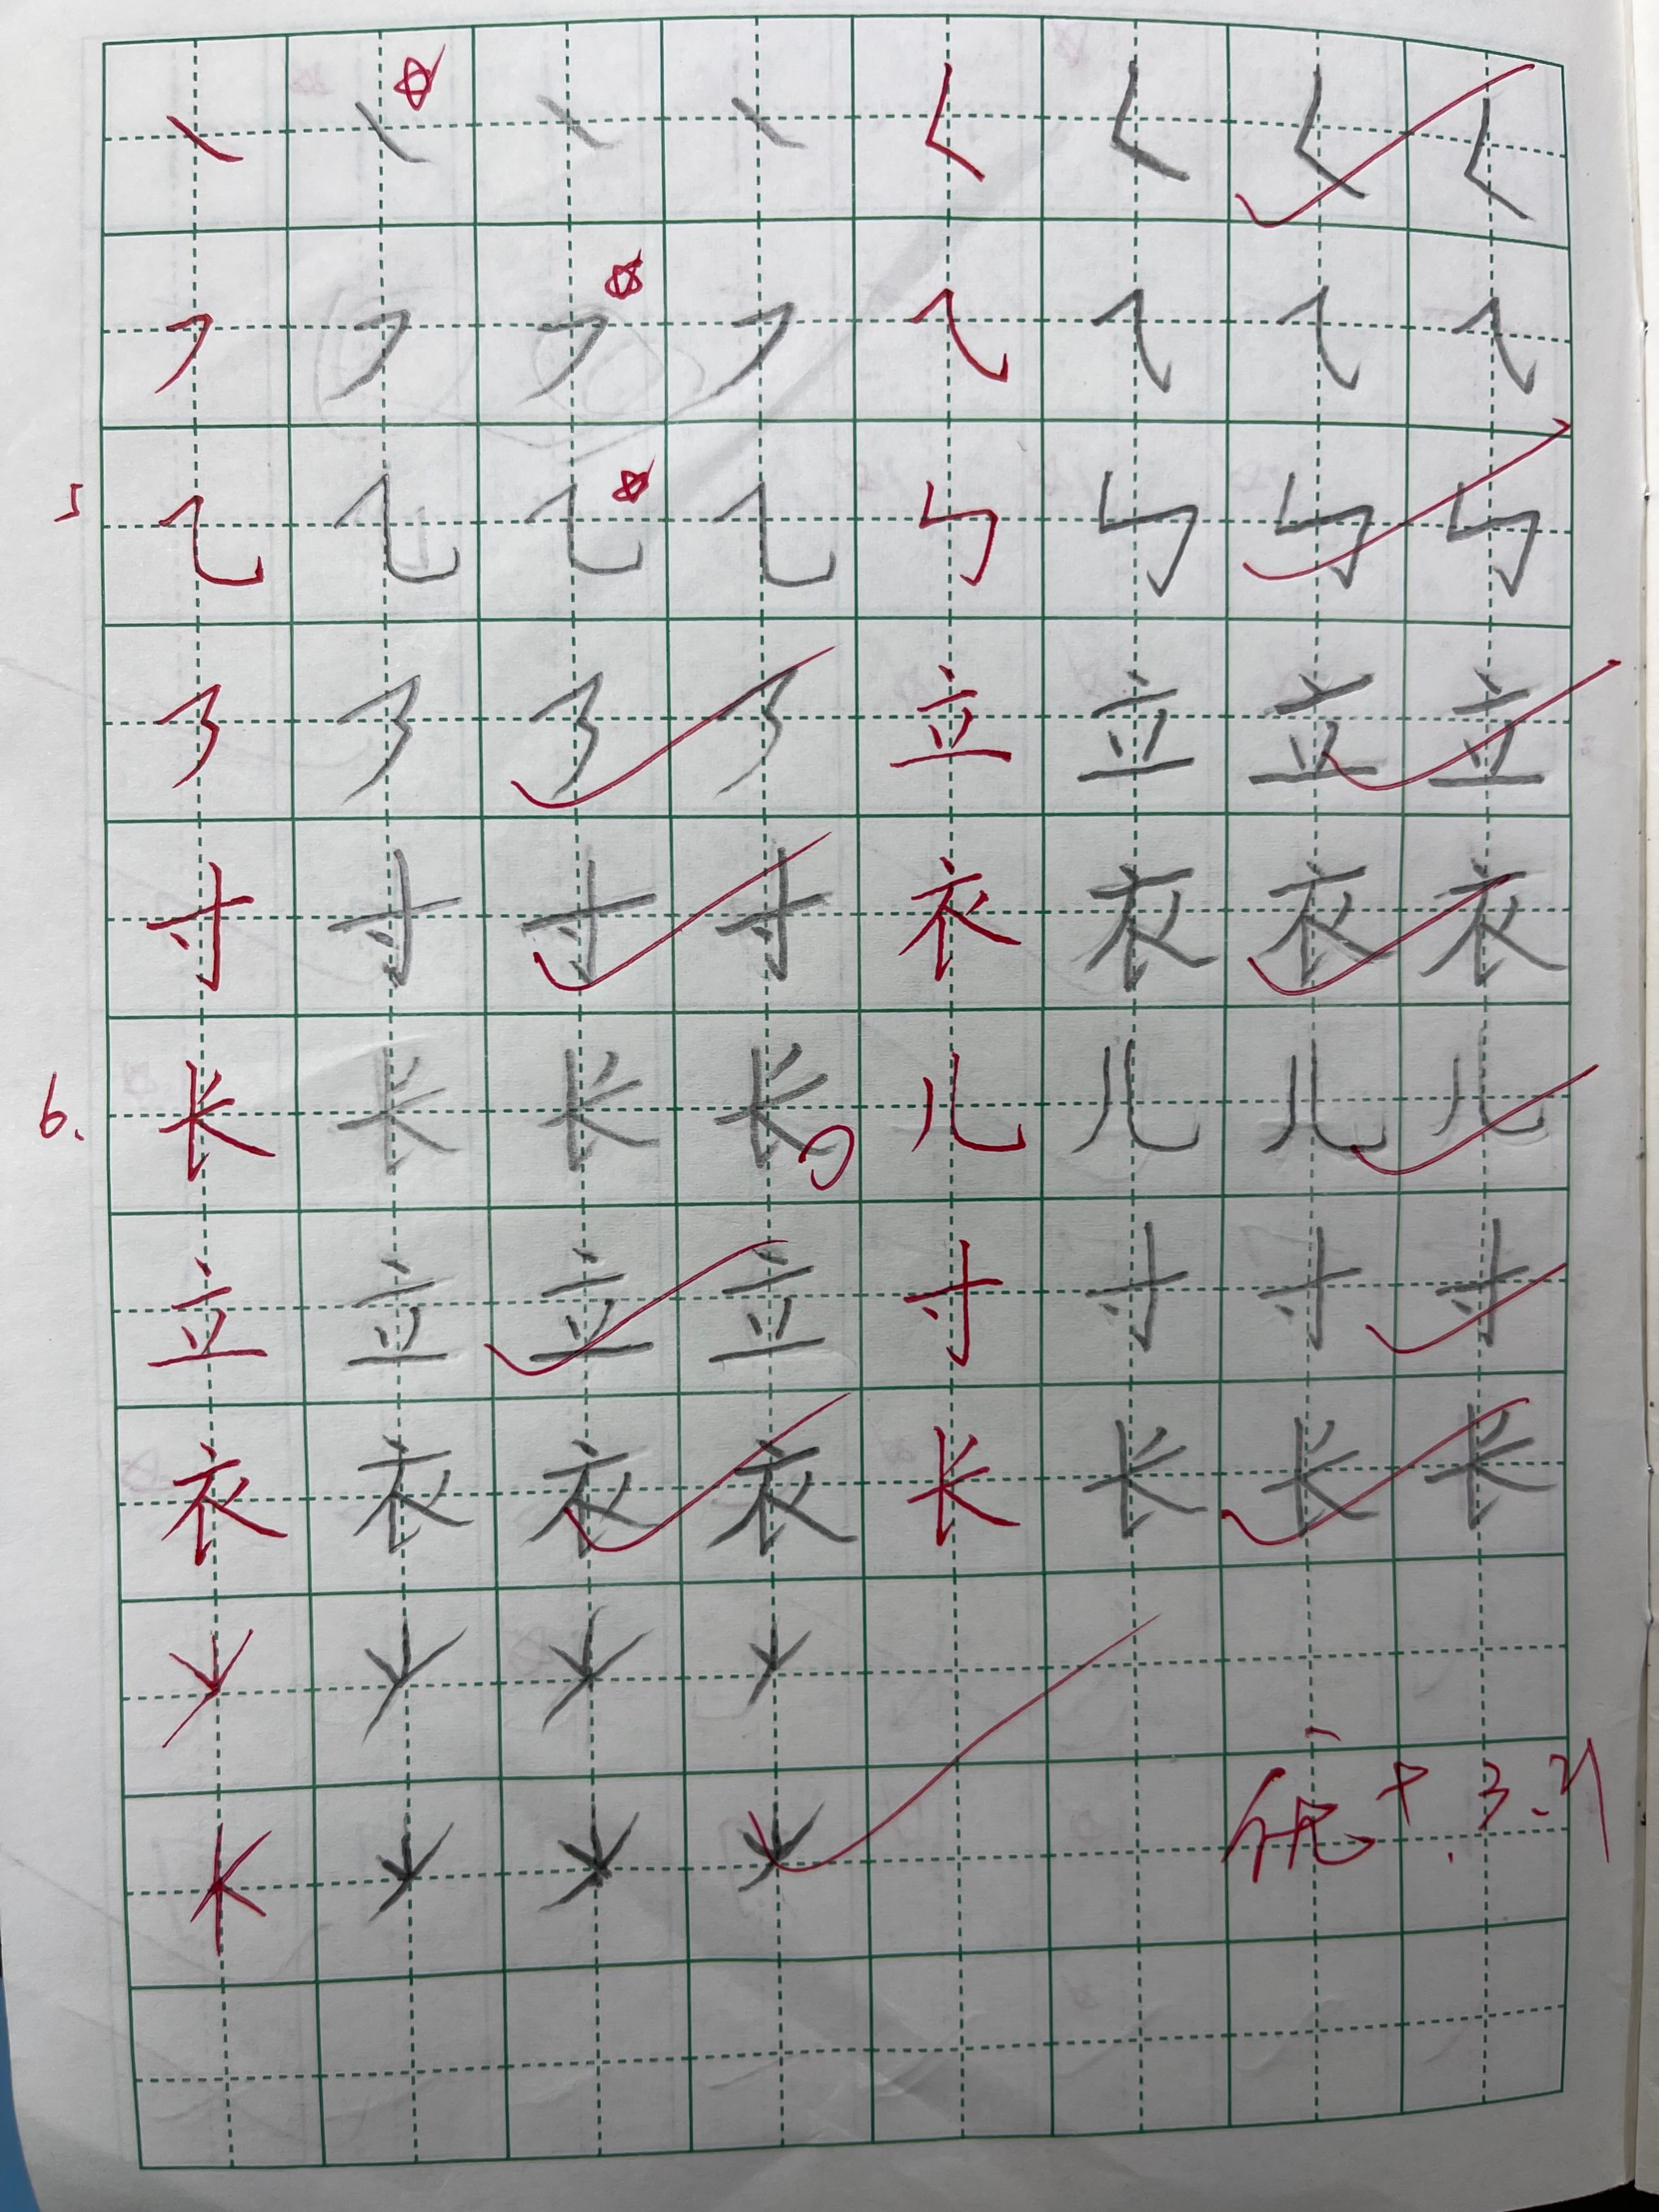 ㇔ ㇔ ㇔ ㇔ ㇛ ㇛ ㇛ ㇛
㇇ ㇇ ㇇ ㇇ ⺄ ⺄ ⺄ ⺄
5 ㇈ ㇈ ㇈ ㇈ ㇉ ㇉ ㇉ ㇉
㇋ ㇋ ㇋ ㇋ 立 立 立 立
寸 寸 寸 寸 衣 衣 衣 衣
6. 长 长 长 长 儿 儿 儿 儿
立 立 立 立 寸 寸 寸 寸
衣 衣 衣 衣 长 长 长 长
优+ 3.21